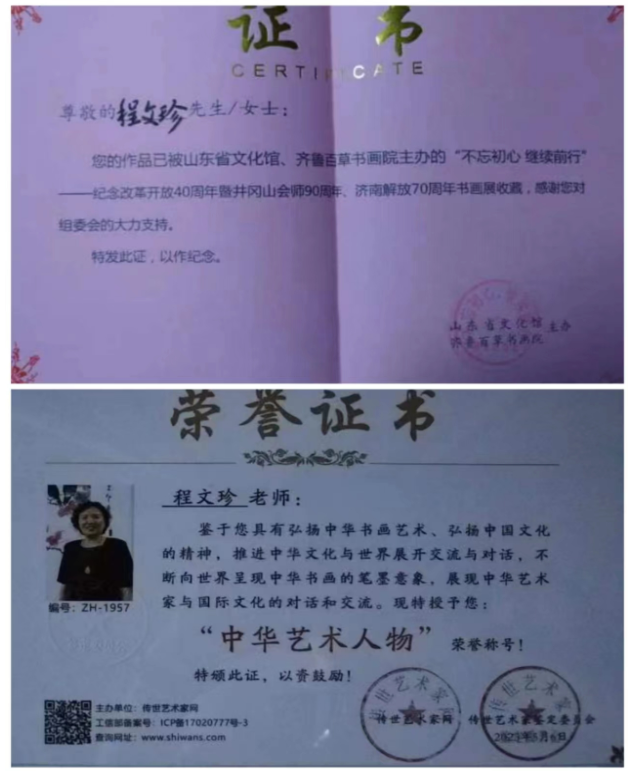 证 书
CERTIFICATE
尊敬的程文珍先生/女士：
您的作品已被山东省文化馆、齐鲁百草书画院主办的“不忘初心 继续前行”
——纪念改革开放40周年暨井冈山会师90周年、济南解放70周年书画展收藏，感谢您对
组委会的大力支持。
特发此证，以作纪念。
山东省文化馆
齐鲁百草书画院
主办
荣誉证书
程文珍 老师：
鉴于您具有弘扬中华书画艺术、弘扬中国文化
的精神，推进中华文化与世界展开交流与对话，不
断向世界呈现中华书画的笔墨意象，展现中华艺术
家与国际文化的对话和交流。现特授予您：
“中华艺术人物” 荣誉称号！
特颁此证，以资鼓励！
编号：ZH-1957
主办单位：传世艺术家网
工信部备案号：ICP鲁17020777号-3
查询网址：www.shiwans.com
传世艺术家网
传世艺术家网 传世艺术家鉴定委员会